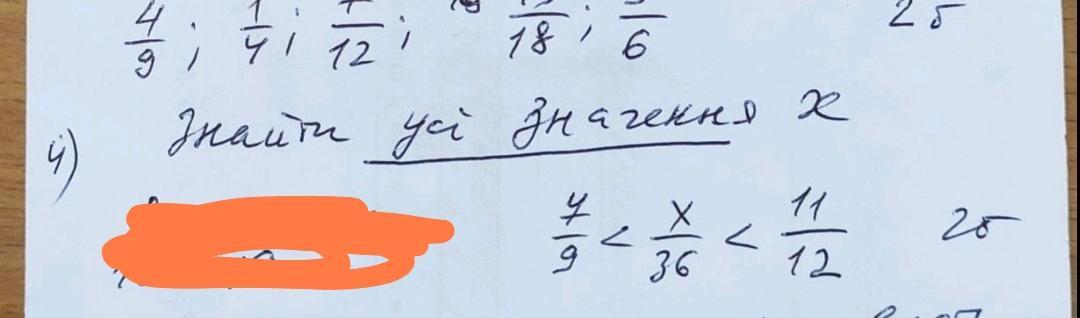 4/9 ; 1/4 ; 7/12 ; /18 ; /6 2б
4) Знайти усі значення x
7/9 < x/36 < 11/12 2б